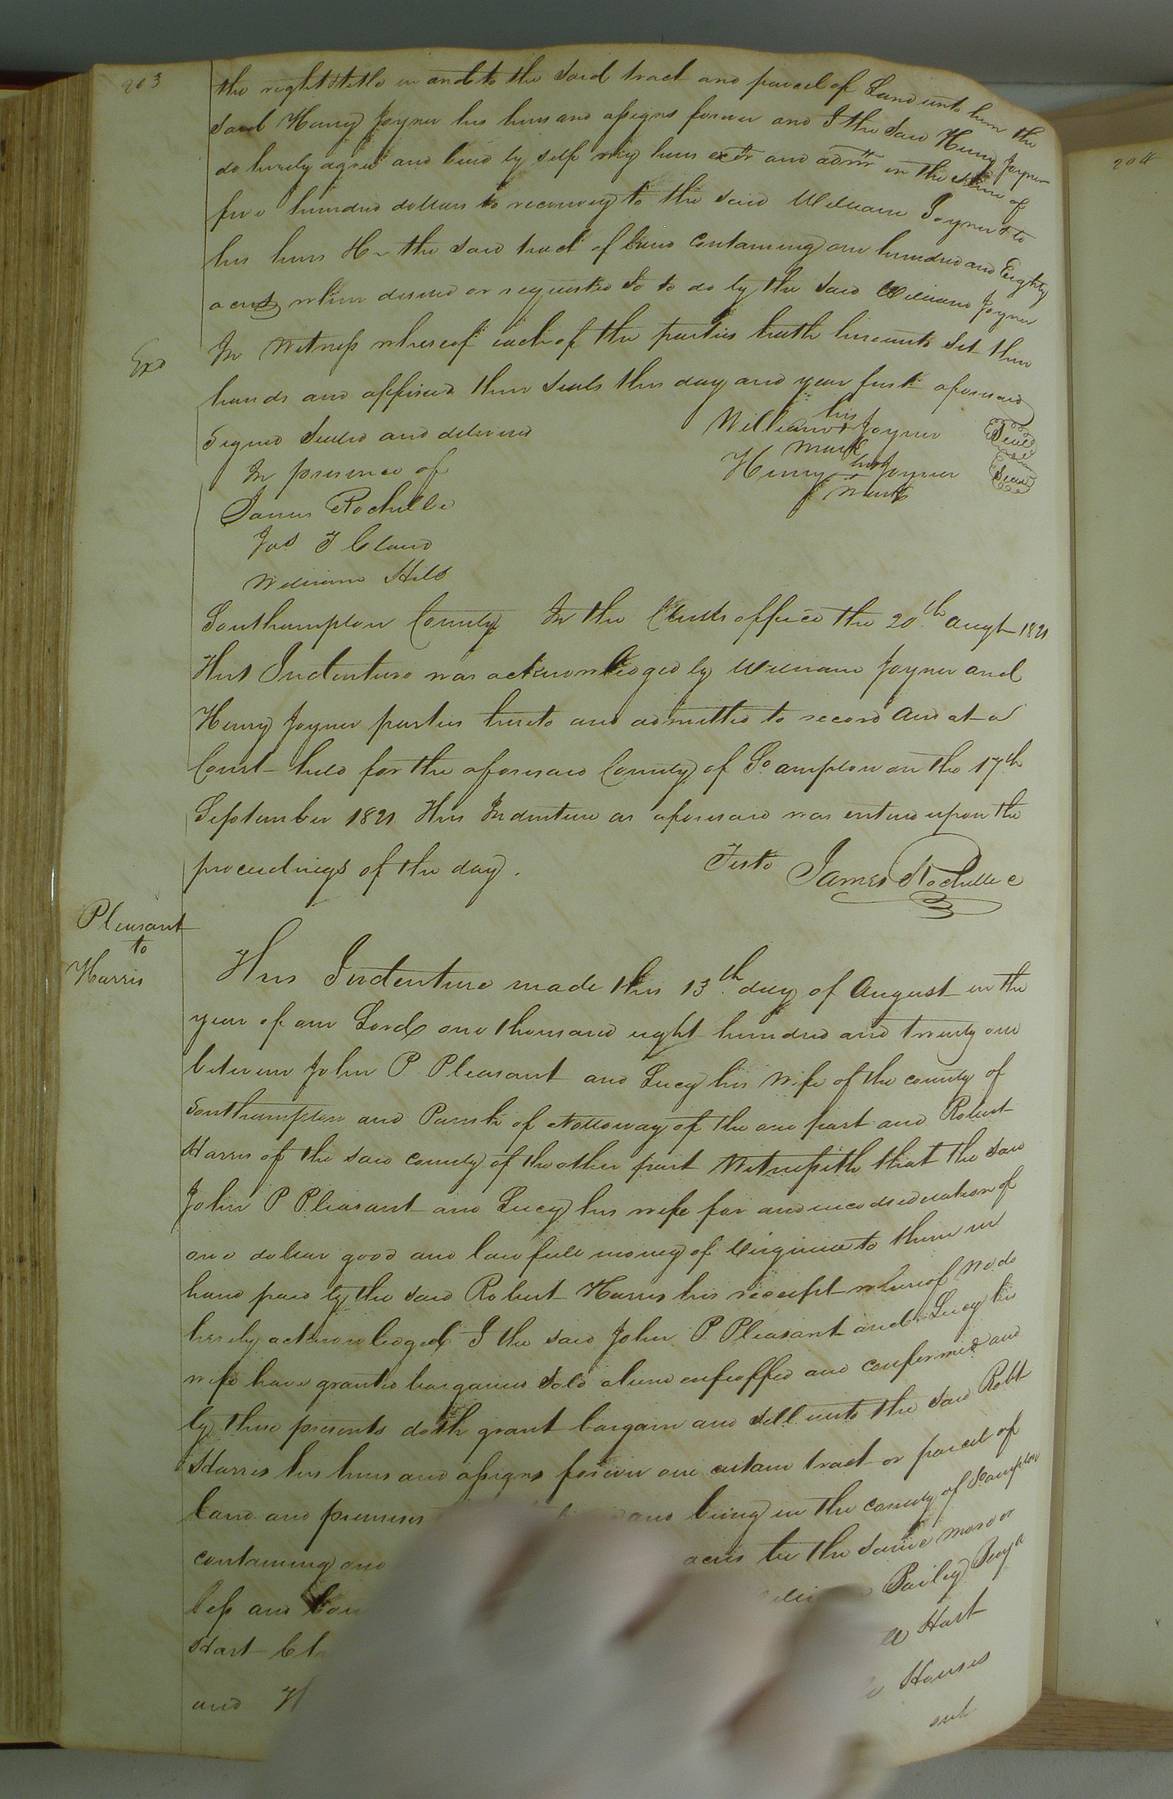 203
the right title in and to the said tract and parcel of Land unto him the
said Henry Joyner his heirs and assigns forever and I the said Henry Joyner
do hereby agree and bind by self my heirs exctr and admr in the sum of
five hundred dollars to reconvey to the said William Joyner & to
his heirs the said tract of land containing one hundred and Eighty
acres when desired or requested so to do by the said William Joyner
Exd
In Witness whereof each of the parties hath hereunto set their
hands and affixed their seals this day and year first aforesaid
Signed Sealed and delivered
In presence of
James Rochelle
Jas T Claud
William Hill
William his Joyner Seal
mark
Henry his Joyner Seal
mark
Southampton County In the Clerks office the 20th Augt 1821
This Indenture was acknowledged by William Joyner and
Henry Joyner parties hereto and admitted to record And at a
Court held for the aforesaid County of So ampton on the 17th
September 1821 This Indenture as aforesaid was entered upon the
proceedings of the day.
Teste James Rochelle C
Pleasant
to
Harris
This Indenture made this 13th day of August in the
year of our Lord one thousand eight hundred and twenty one
between John P Pleasant and Lucy his wife of the county of
Southampton and Parish of Nottoway of the one part and Robert
Harris of the said county of the other part Witnesseth that the said
John P Pleasant and Lucy his wife for and in consideration of
one dollar good and lawfull money of Virginia to them in
hand paid by the said Robert Harris his receipt whereof We do
hereby acknowledged I the said John P. Pleasant and Lucy his
wife have granted bargained sold aliend enfeoffed and confermed and
by these presents doth grant bargain and sell unto the said Robt
Harris his heirs and assigns forever one certain tract or parcel of
land and premises and being in the county of So ampton
containing one acres be the same more or
less and Bailey
Hart Hart
and Houses
204